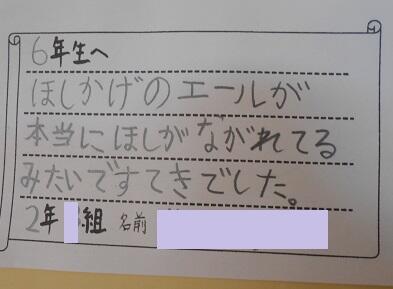 6年生へ
ほしかげのエールが
本当にほしがながれてる
みたいですてきでした。
2年 組 名前